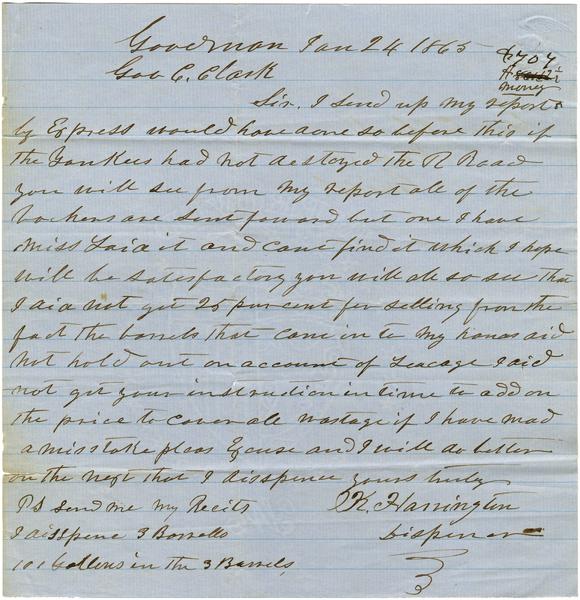 Goodman Jan 24 1865
Gov C. Clark
$707
money
Sir. I send up my report
by Express would have done so before this if
the Yankees had not destoyed the R Road
you will see from my report all of the
vochers are sent foward but one I have
miss Laid it and cant find it which I hope
will be satesfactory you will also see that
I did not get 25 pur cent for selling from the
fact the barrels that came in to my hands did
not hold out on account of Leacage I did
not get your instruction in time to add on
the price to cover all wastage if I have mad
a misstake pleas Excuse and I will do better
on the next that I disspence yours truly
PS send me my Recits
K. Harrington
I disspence 3 Barrells
Dispencer
101 Gallons in the 3 Barrels